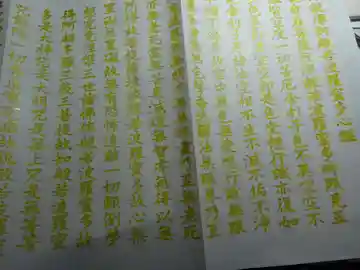 般若波羅蜜多心經
觀自在菩薩行深般若波羅蜜多時照見五
蘊皆空度一切苦厄舍利子色不異空空不
異色色即是空空即是色受想行識亦復如
是舍利子是諸法空相不生不滅不垢不淨
不增不減是故空中無色無受想行識無眼
耳鼻舌身意無色聲香味觸法無眼界乃至
無意識界無無明亦無無明盡乃至無老死
亦無老死盡無苦集滅道無智亦無得以無
所得故菩提薩埵依般若波羅蜜多故心無
罣礙無罣礙故無有恐怖遠離一切顛倒夢
想究竟涅槃三世諸佛依般若波羅蜜多故
得阿耨多羅三藐三菩提故知般若波羅蜜
多是大神咒是大明咒是無上咒是無等等
咒能除一切苦真實不虛故說